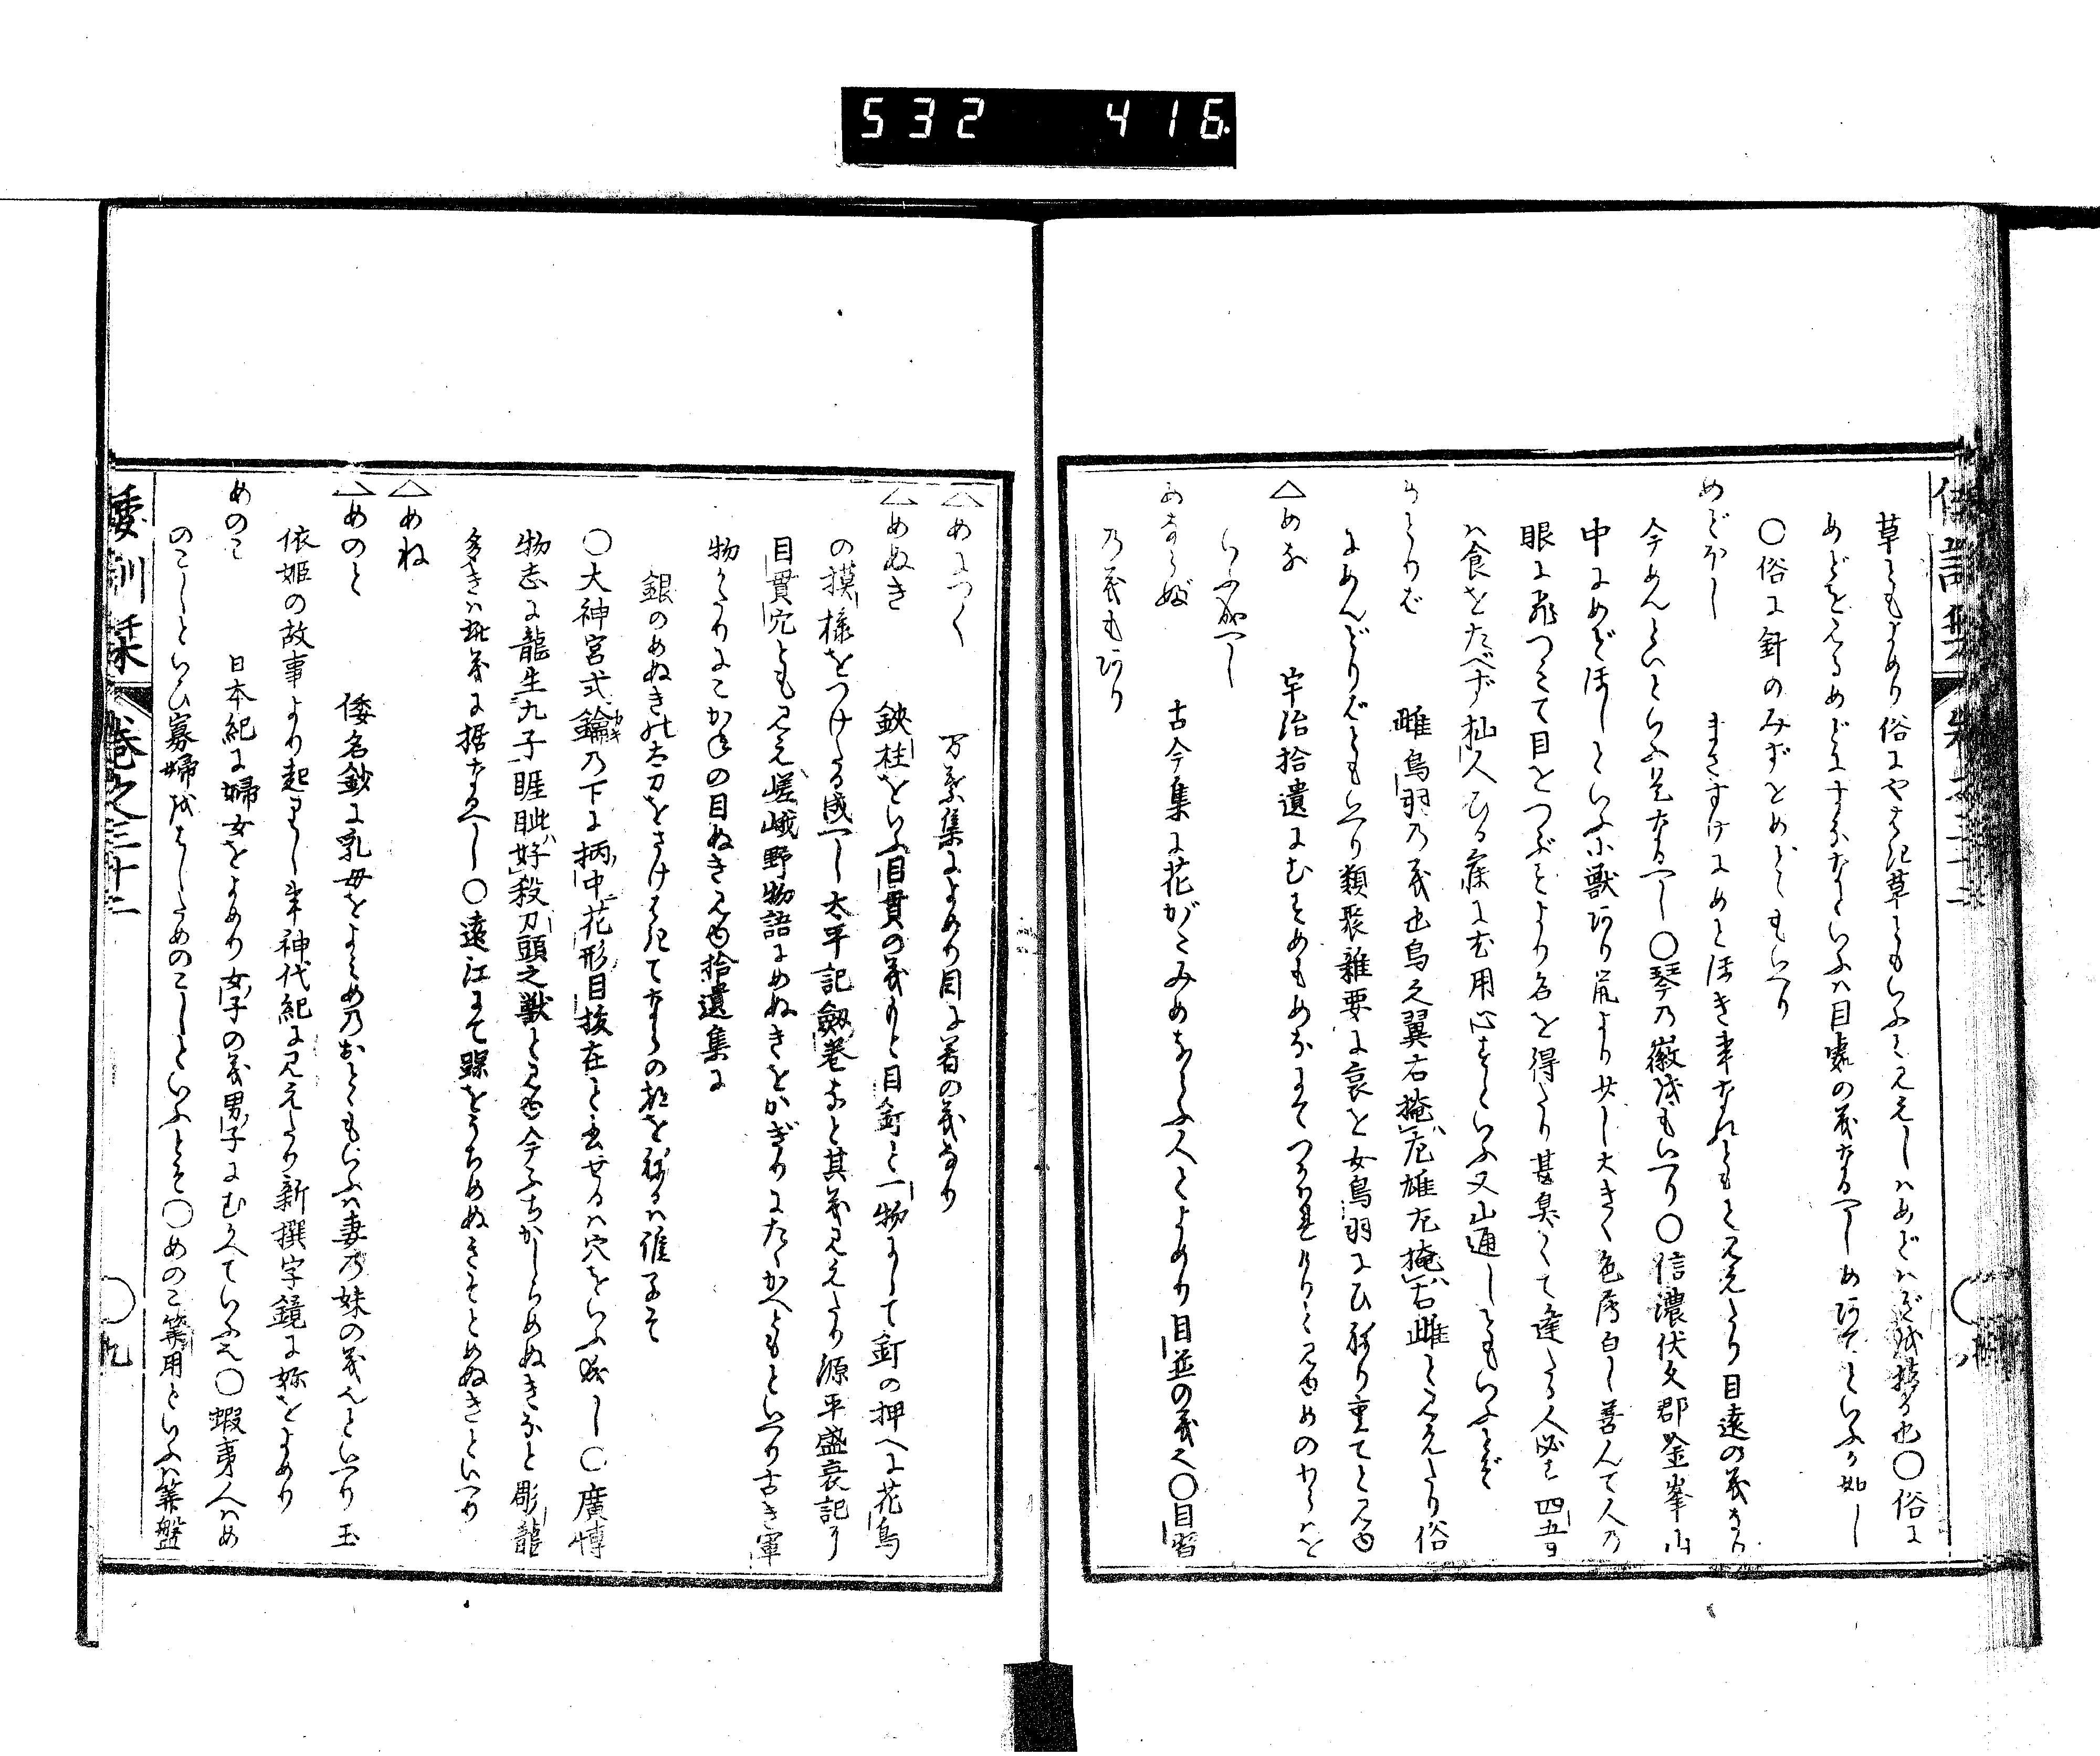 532 416
草ともよめり俗にやはき草ともいふと見えしはめどはぎ成〇俗に
めどをとるめどにすななといふは目處の義なるべしめあてといふが如し
〇俗に針のみずをめどともいへり
めどほし まさすけにめとほき事なれともと見えたり目遠の義なり
今めんといふ是なるべし〇琴の徽をもいへり〇信濃伏久郡金峯山
中にめどほしといふ小獣あり鼠より少し大きく色薄白し善んて人の
眼に飛つきて目をつぶすより名を得たり甚臭くて逢たる人必す四五日
は食をたべず杣人ひる寐に尤用心すといふ又山通しともいふとぞ
めとりば 雌鳥羽の義也鳥之翼右掩左雄左掩右雌と見えたり俗
にめんどりばともいへり類聚雑要に裏を女鳥羽にひねり重てと見ゆ
△めな 宇治拾遺にむすめもめなにてつかはれけりと見ゆめのわらはを
いふ成べし
めならぶ 古今集に花がたみめならぶ人とよめり目並の義也〇目習
の義もあり
△めにつく 万葉集によめり目に着の義なり
△めぬき 鋏柱をいふ目貫の義もと目釘と一物にして釘の押へに花鳥
の摸樣をつけたる成べし太平記劔巻なと其義見えたり源平盛衰記に
目貫穴とも見え嵯峨野物語にめぬきをかぎりにたゝかへともといへり古き軍
物かたりにこがねの目ぬき見ゆ拾遺集に
銀のめぬきの太刀をさけはきてならの都をねるは誰子そ
〇大神宮式鑰の下に柄中花形目抜在と書せるは穴をいふ成へし〇廣博
物志に龍生九子睚眦好殺刀頭之獣と見ゆ今ふちかしらめぬきなと彫龍
多きは此義に据なるべし〇遠江にて踝をうちめぬきそとめぬきといへり
△めね
△めのと 倭名鈔に乳母をよみめのおともいふは妻の妹の義也といへり玉
依姫の故事より起れりし事神代紀に見えたり新撰字鏡に妳をよめり
めのこ 日本紀に婦女をよめり女子の義男子にむかへていふ也〇蝦夷人はめ
のこしといひ寡婦をはしためのこしといふとそ〇めのこ筭用といふは筭盤
倭訓栞 卷之三十二 〇九